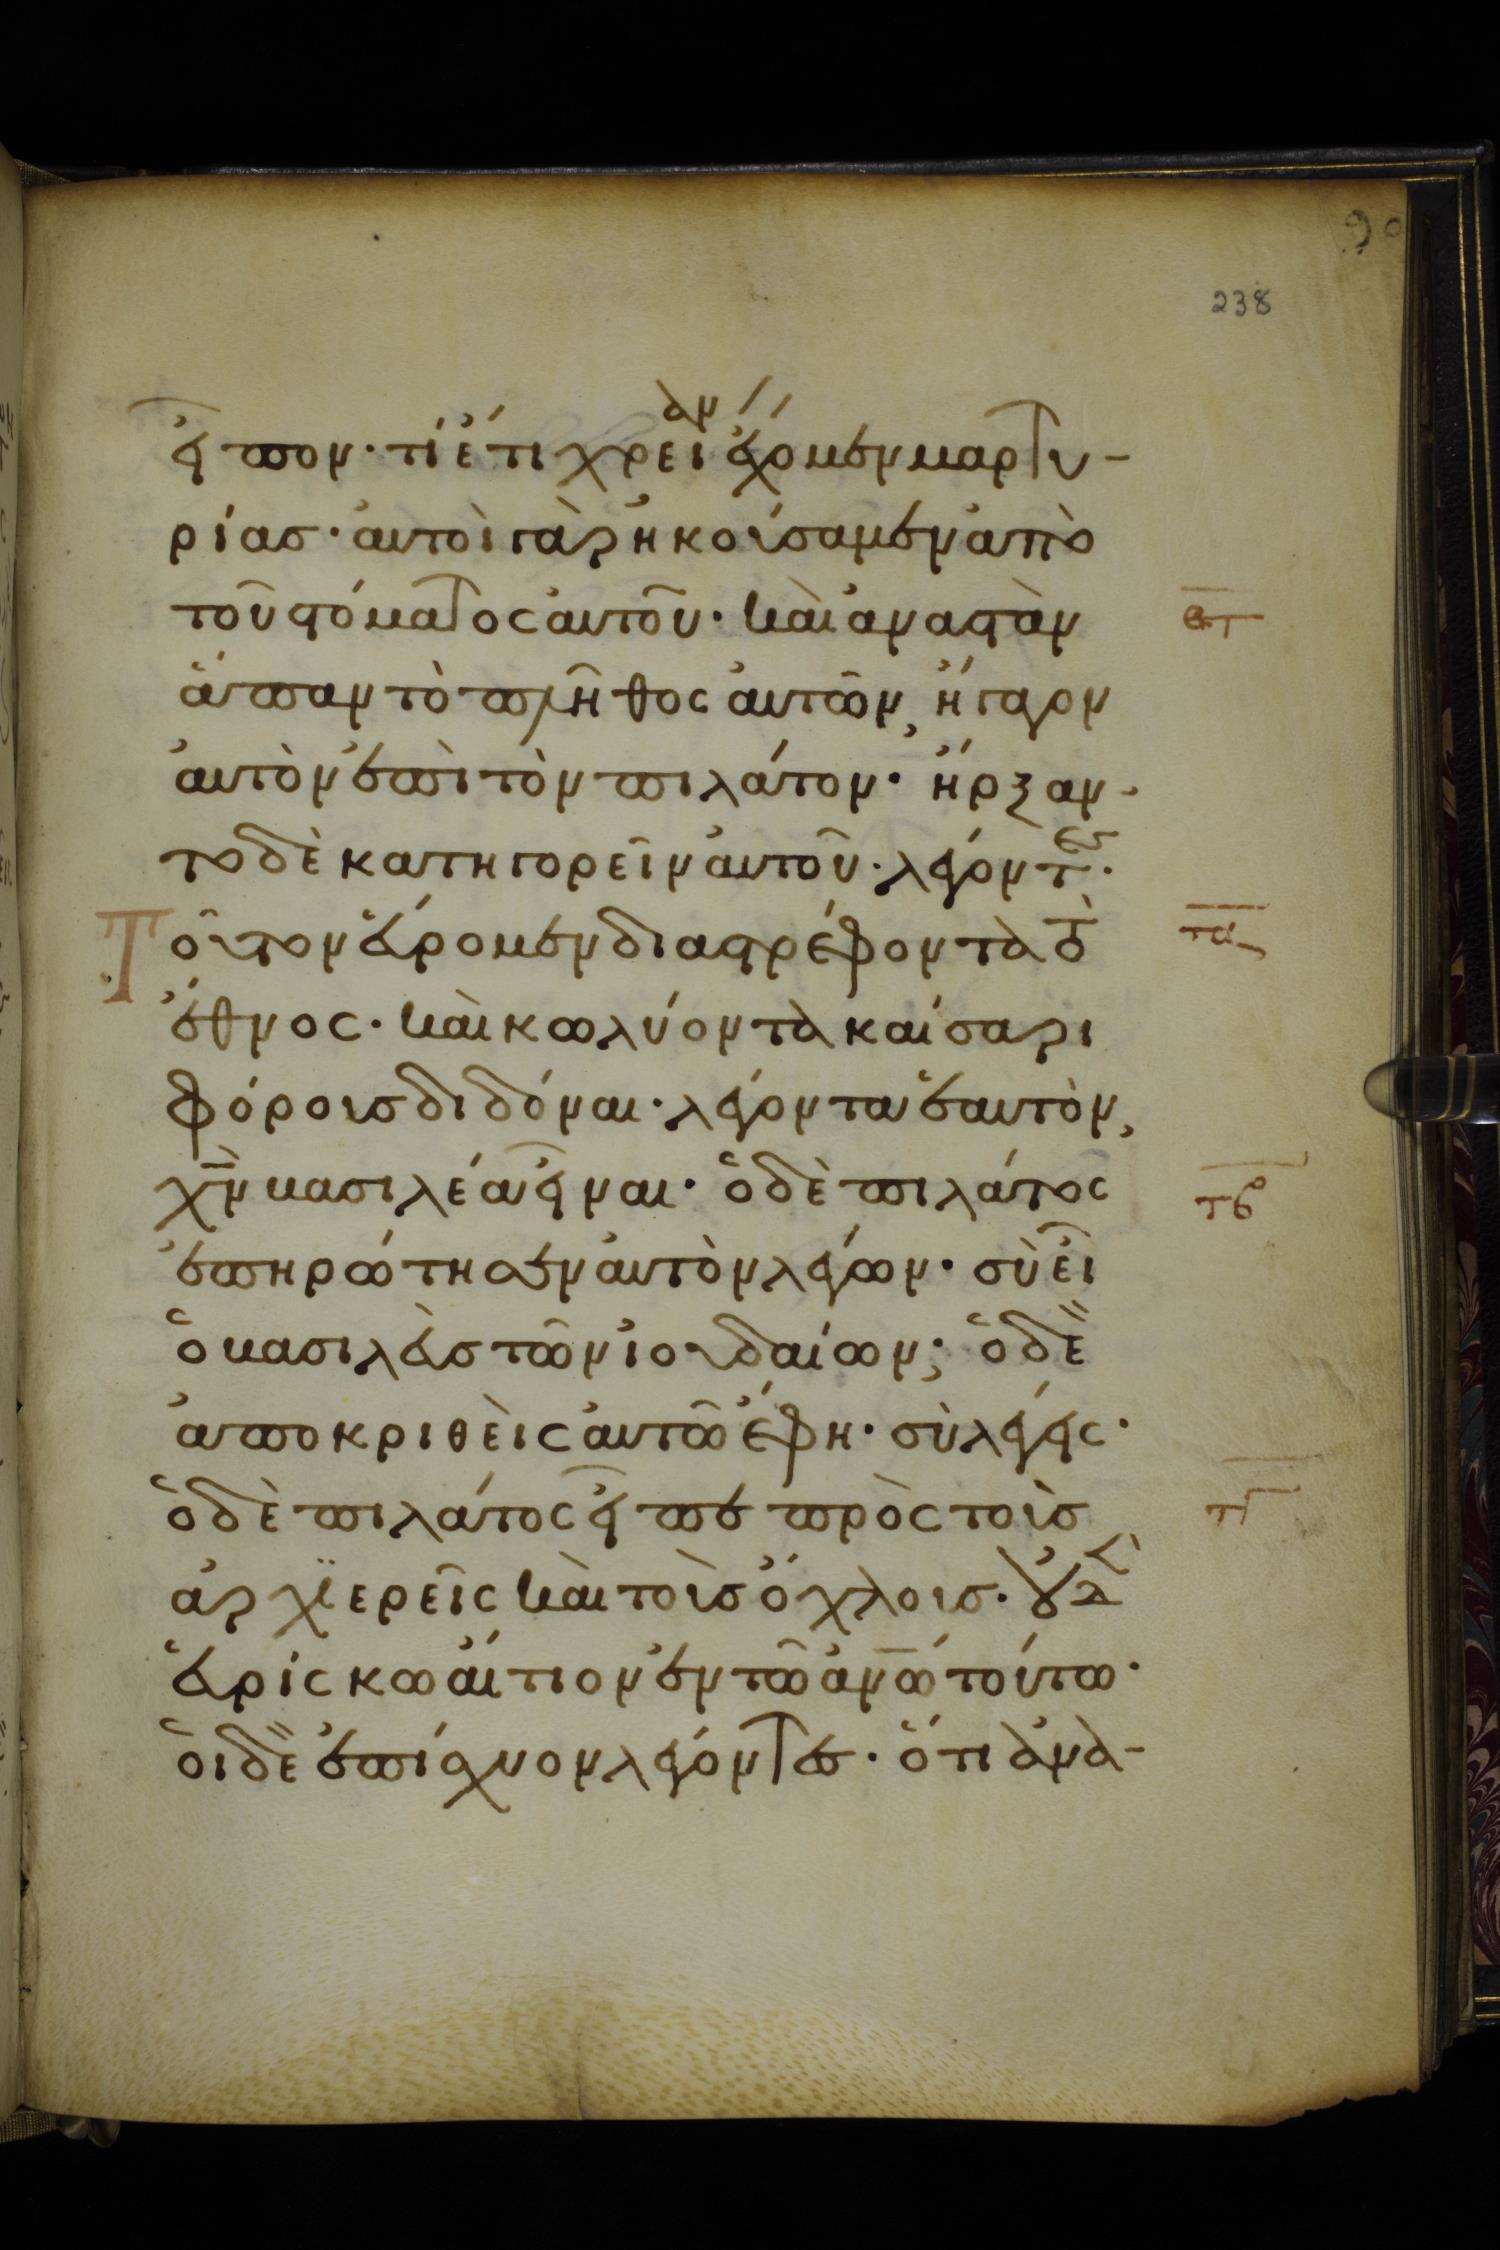 90
238
εἶπον· τί ἔτι χρείαν ἔχομεν μαρτυ-
ρίας· αὐτοὶ γὰρ ἠκούσαμεν ἀπὸ
τοῦ στόματος αὐτοῦ· καὶ ἀναστὰν
ἅπαν τὸ πλῆθος αὐτῶν, ἤγαγον
αὐτὸν ἐπὶ τὸν πιλάτον· ἤρξαν-
το δὲ κατηγορεῖν αὐτοῦ· λέγοντες·
Τοῦτον εὕρομεν διαστρέφοντα τὸ
τα
ἔθνος· καὶ κωλύοντα καίσαρι
φόρους διδόναι· λέγοντα ἑαυτὸν,
χν βασιλέα εἶναι· ὁ δὲ πιλάτος
τβ
ἐπηρώτησεν αὐτὸν λέγων· σὺ εἶ
ὁ βασιλεὺς τῶν ἰουδαίων; ὁ δὲ
ἀποκριθεὶς αὐτῶ ἔφη· σὺ λέγεις·
ὁ δὲ πιλάτος εἶπε πρὸς τοὺς
τγ
ἀρχιερεῖς καὶ τοὺς ὄχλους· οὐδὲν
εὑρίσκω αἴτιον ἐν τῶ ἀνω τούτω·
οἱ δὲ ἐπίσχυον λέγοντες· ὅτι ἀνα-